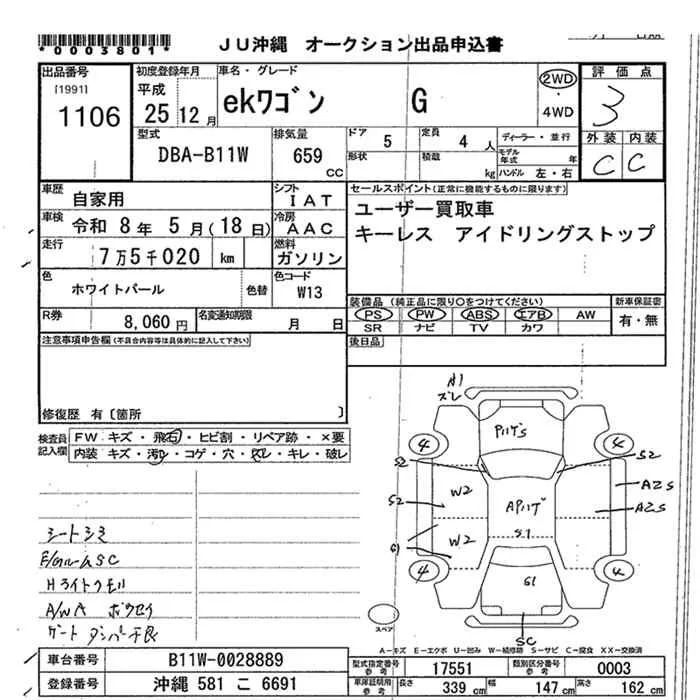 *0003801*
JU沖縄 オークション出品申込書
出品番号
[1991]
1106
初度登録年月
平成
25 12月
車名・グレード
ekワゴン G
2WD
・
4WD
評価点
3
外装 内装
C C
型式
DBA-B11W
排気量
659
CC
ドア 5
定員 4 人
形状
積載 kg
ディーラー・並行
モデル年式 年
ハンドル 左・右
車歴 自家用
シフト IAT
車検 令和 8年 5月(18日)
冷房 AAC
走行 7万5千020 km
燃料 ガソリン
色 ホワイトパール 色替
色コード W13
R券 8,060円
名変通知期限 月 日
セールスポイント(正常に機能するものに限ります)
ユーザー買取車
キーレス アイドリングストップ
装備品(純正品に限り○をつけてください)
新車保証書
PS PW ABS エアB AW
有・無
SR ナビ TV カワ
後日品
注意事項申告欄(不具合内容等は具体的に記入して下さい)
修復歴 有〔箇所 〕
検査員
記入欄
FW キズ・飛石・ヒビ割・リペア跡・×要
内装 キズ・汚れ・コゲ・穴・スレ・キレ・破レ
シートシミ
E/GルームSC
Hライトクモリ
A1
ズレ
4 4
S2 S2
W2
S2
AZS
AZS
W2
G1
S1
G1
4 4
SC
スペア
A-キズ E-エクボ U-凹み W-補修跡 S-サビ C-腐食 XX-交換済
車台番号 B11W-0028889
登録番号 沖縄 581 こ 6691
型式指定番号参考 17551
類別区分番号参考 0003
車庫証明用参考
長さ 339 cm
幅 147 cm
高さ 162 cm